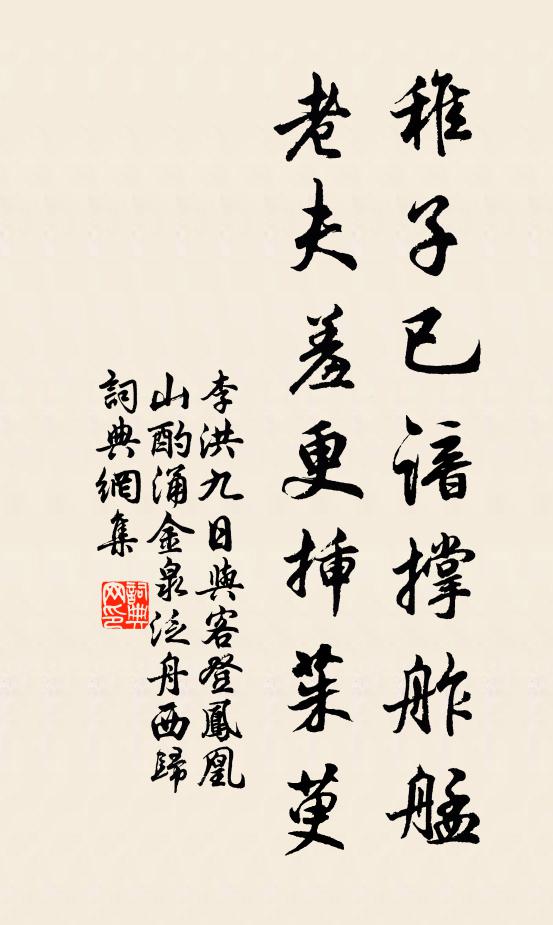 稚子已諳撐舴艋
老夫羞更揷茱萸
李洪九日與客登鳳凰
山酌涌金泉泛舟西歸
詞典網集
詞典网印